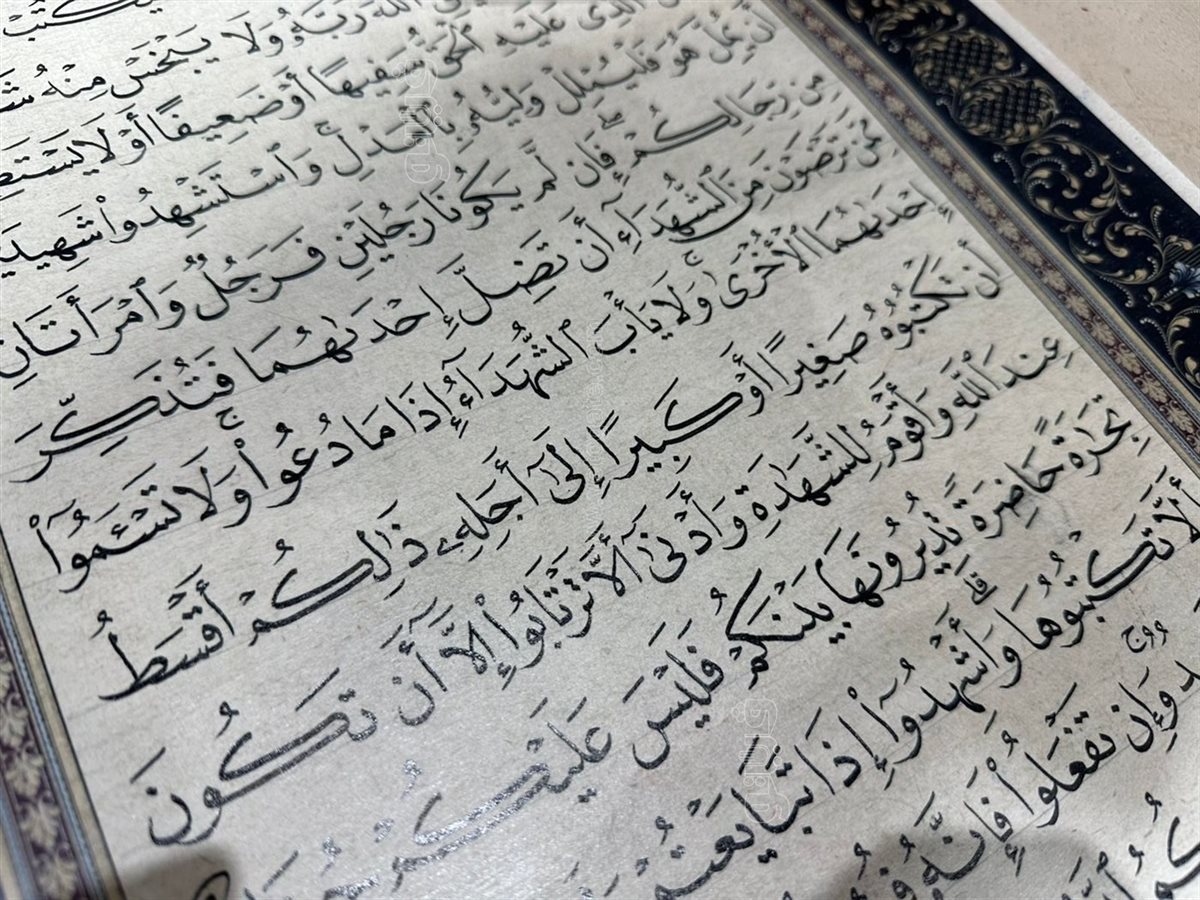 ٱللَّهَ رَبَّهُۥ وَلَا يَبْخَسْ مِنْهُ
ٱلَّذِى عَلَيْهِ ٱلْحَقُّ سَفِيهًا أَوْ ضَعِيفًا أَوْ لَا يَسْتَطِ
أَن يُمِلَّ هُوَ فَلْيُمْلِلْ وَلِيُّهُۥ بِٱلْعَدْلِ ۚ وَٱسْتَشْهِدُوا۟ شَهِيدَ
مِن رِّجَالِكُمْ ۖ فَإِن لَّمْ يَكُونَا رَجُلَيْنِ فَرَجُلٌ وَٱمْرَأَتَانِ
مِمَّن تَرْضَوْنَ مِنَ ٱلشُّهَدَآءِ أَن تَضِلَّ إِحْدَىٰهُمَا فَتُذَكِّرَ
إِحْدَىٰهُمَا ٱلْأُخْرَىٰ ۚ وَلَا يَأْبَ ٱلشُّهَدَآءُ إِذَا مَا دُعُوا۟ ۚ وَلَا تَسْـَٔمُوٓا۟
أَن تَكْتُبُوهُ صَغِيرًا أَوْ كَبِيرًا إِلَىٰٓ أَجَلِهِۦ ذَٰلِكُمْ أَقْسَطُ
عِندَ ٱللَّهِ وَأَقْوَمُ لِلشَّهَٰدَةِ وَأَدْنَىٰٓ أَلَّا تَرْتَابُوٓا۟ إِلَّآ أَن تَكُونَ
تِجَٰرَةً حَاضِرَةً تُدِيرُونَهَا بَيْنَكُمْ فَلَيْسَ عَلَيْكُمْ
أَلَّا تَكْتُبُوهَا ۗ وَأَشْهِدُوٓا۟ إِذَا تَبَايَعْتُمْ
وَإِن تَفْعَلُوا۟ فَإِنَّهُۥ